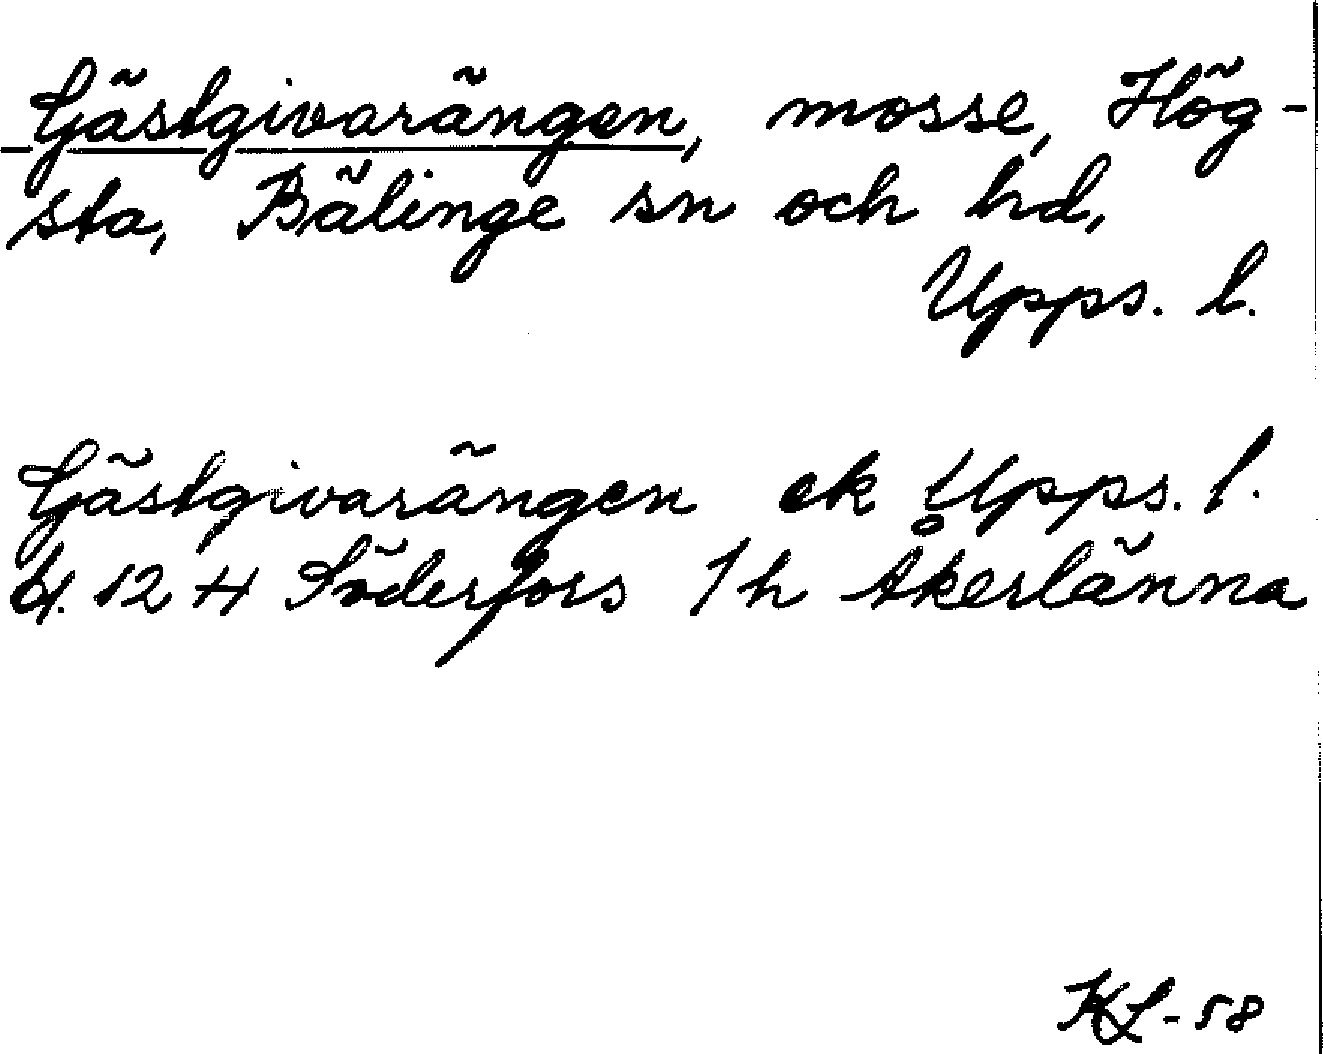 Gästgivarängen, mosse, Hög-
sta, Bälinge sn och hd,
Upps. l.
Gästgivarängen ek Upps. l.
bl. 12 H Söderfors 1 h Åkerlänna
KL-58